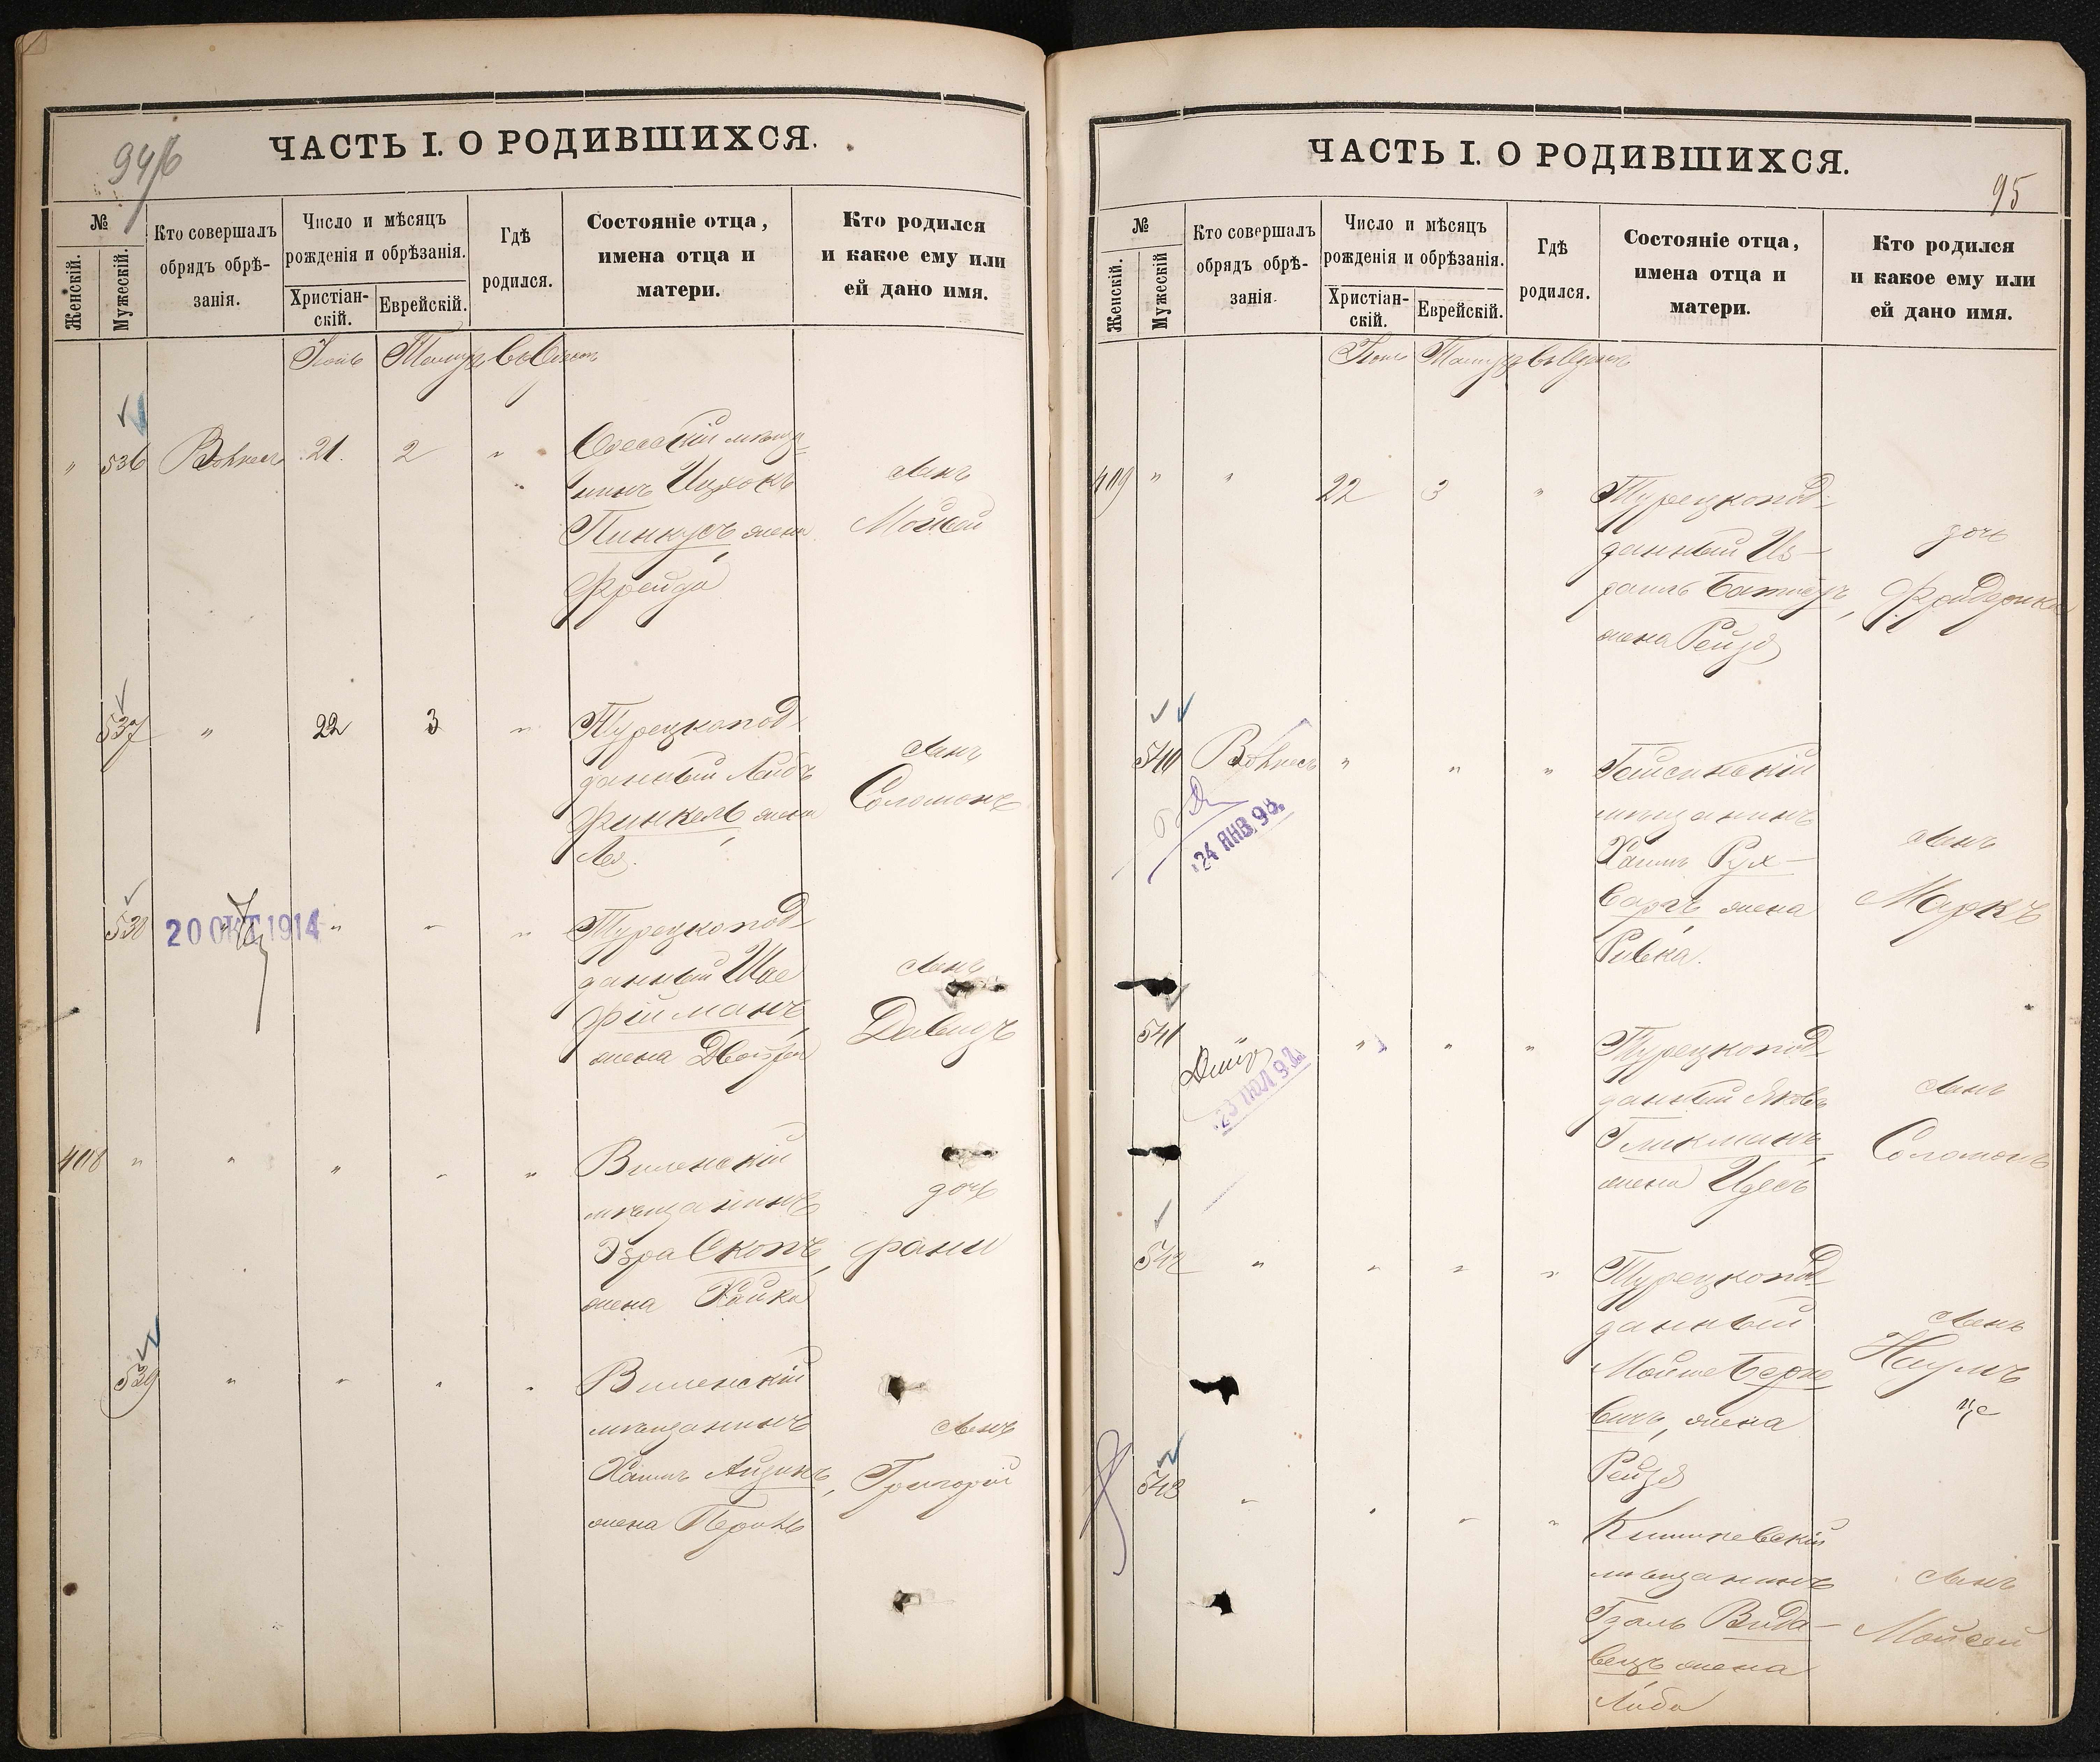 94/б
ЧАСТЬ I. О РОДИВШИХСЯ.
№
Женскій.
Мужескій.
Кто совершалъ
обрядъ обрѣ-
занія.
Число и мѣсяцъ
рожденія и обрѣзанія.
Христіан-
скій.
Еврейскій.
Гдѣ
родился.
Состояніе отца,
имена отца и
матери.
Кто родился
и какое ему или
ей дано имя.
" 536 21. 2 "
Одесскій мѣща-
нинъ Ицхокъ
Пинкусъ, жена
Фрейда
сынъ
Мойсей
537 " 22 3 "
Турецкопод-
данный Лейбъ
Финкель, жена
Лея.
сынъ
Соломонъ
538 " " " "
20 ОКТ 1914
Турецкопод-
данный Шае
Фийманъ,
жена Двойра
сынъ
Давидъ
408 " " " " "
Виленскій
мѣщанинъ
Эзра Скопъ,
жена Хайка
дочь
Фани
539 " " " "
Виленскій
мѣщанинъ
Хаимъ Айзинъ,
жена Перль
сынъ
Григорій
95
ЧАСТЬ I. О РОДИВШИХСЯ.
№
Женскій.
Мужескій
Кто совершалъ
обрядъ обрѣ-
занія.
Число и мѣсяцъ
рожденія и обрѣзанія.
Христіан-
скій.
Еврейскій.
Гдѣ
родился.
Состояніе отца,
имена отца и
матери.
Кто родился
и какое ему или
ей дано имя.
409 " " 22 3 "
Турецкопод-
данный Из-
раиль
жена Рейзя
дочь
Фридерика
540 " " "
24 ЯНВ. 98.
Гайсинскій
мѣщанинъ
Хаимъ Рух-
варгъ, жена
Ривка.
сынъ
Маркъ
541 " " " "
23 ІЮЛ 92
Турецкопод-
данный Яковъ
Гликманъ,
жена Идесъ
сынъ
Соломонъ
542 " " " "
Турецкопод-
данный
Мойше Берко
вичъ, жена
Рейзя
сынъ
Наумъ
543 " " " "
Кишиневскій
мѣщанинъ
Вида-
вецъ, жена
Либа
сынъ
Мойсей